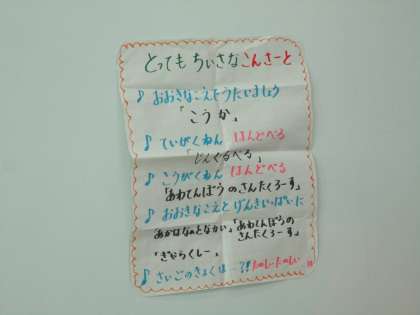 とっても ちいさな こんさーと
♪ おおきなこえでうたいましょう
「こうか」
♪ ていがくねん はんどべる
「じんぐるべる」
♪ こうがくねん はんどべる
「あわてんぼうのさんたくろーす」
♪ おおきなこえと げんきいっぱいに
「あかはなのとなかい」「あわてんぼうのさんたくろーす」
「ぎゃらくしー」
♪ さいごのきょくは…で! たのしーたのしい